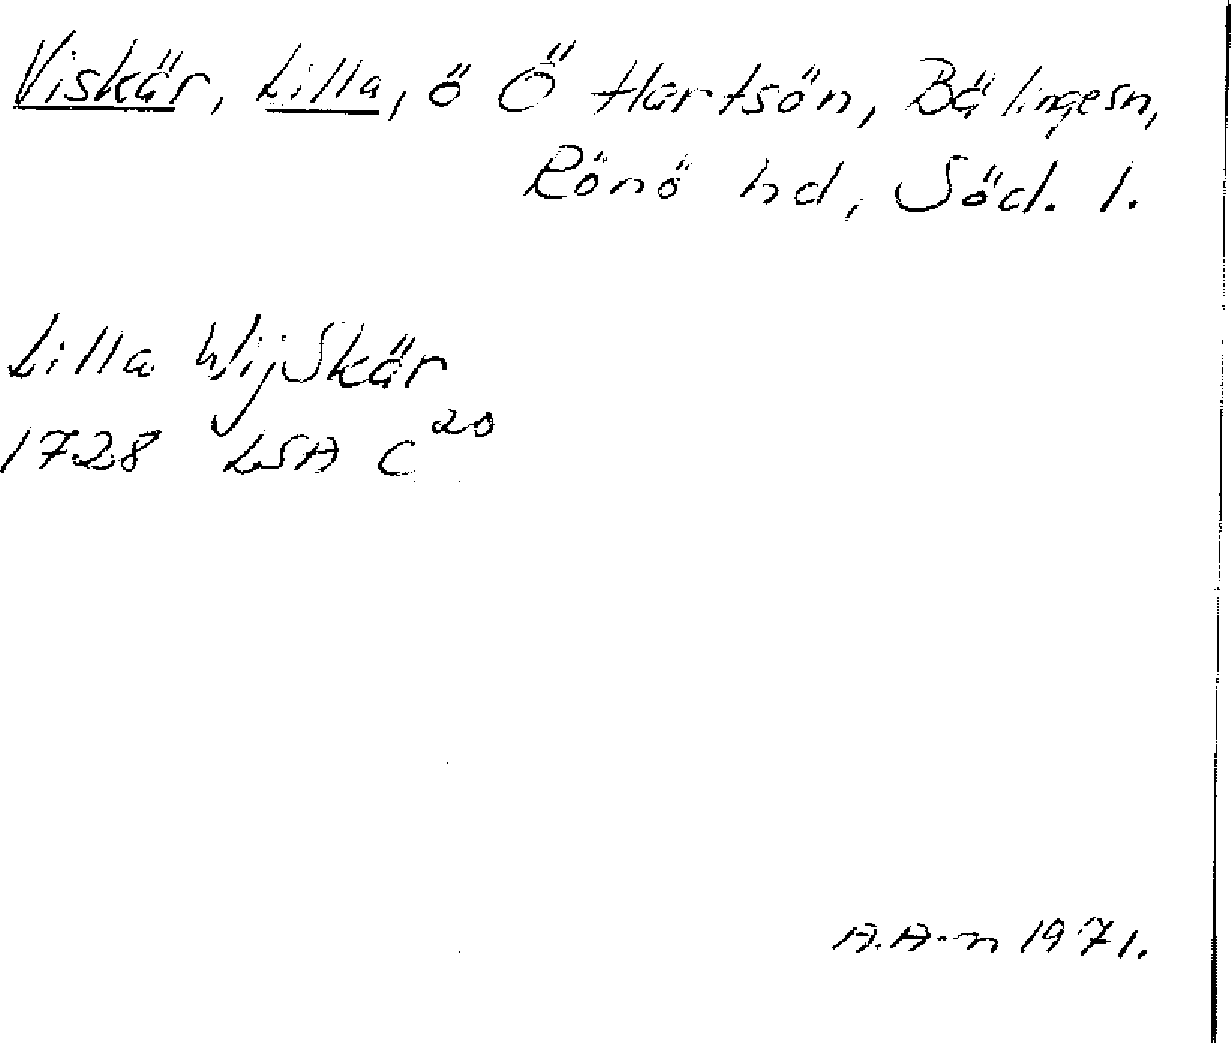 Viskär, Lilla, ö Ö Hartsön, Bälingesn,
Rönö hd, Söd. l.
Lilla WijSkär
1728 LSA C20
A.A-n 1971.